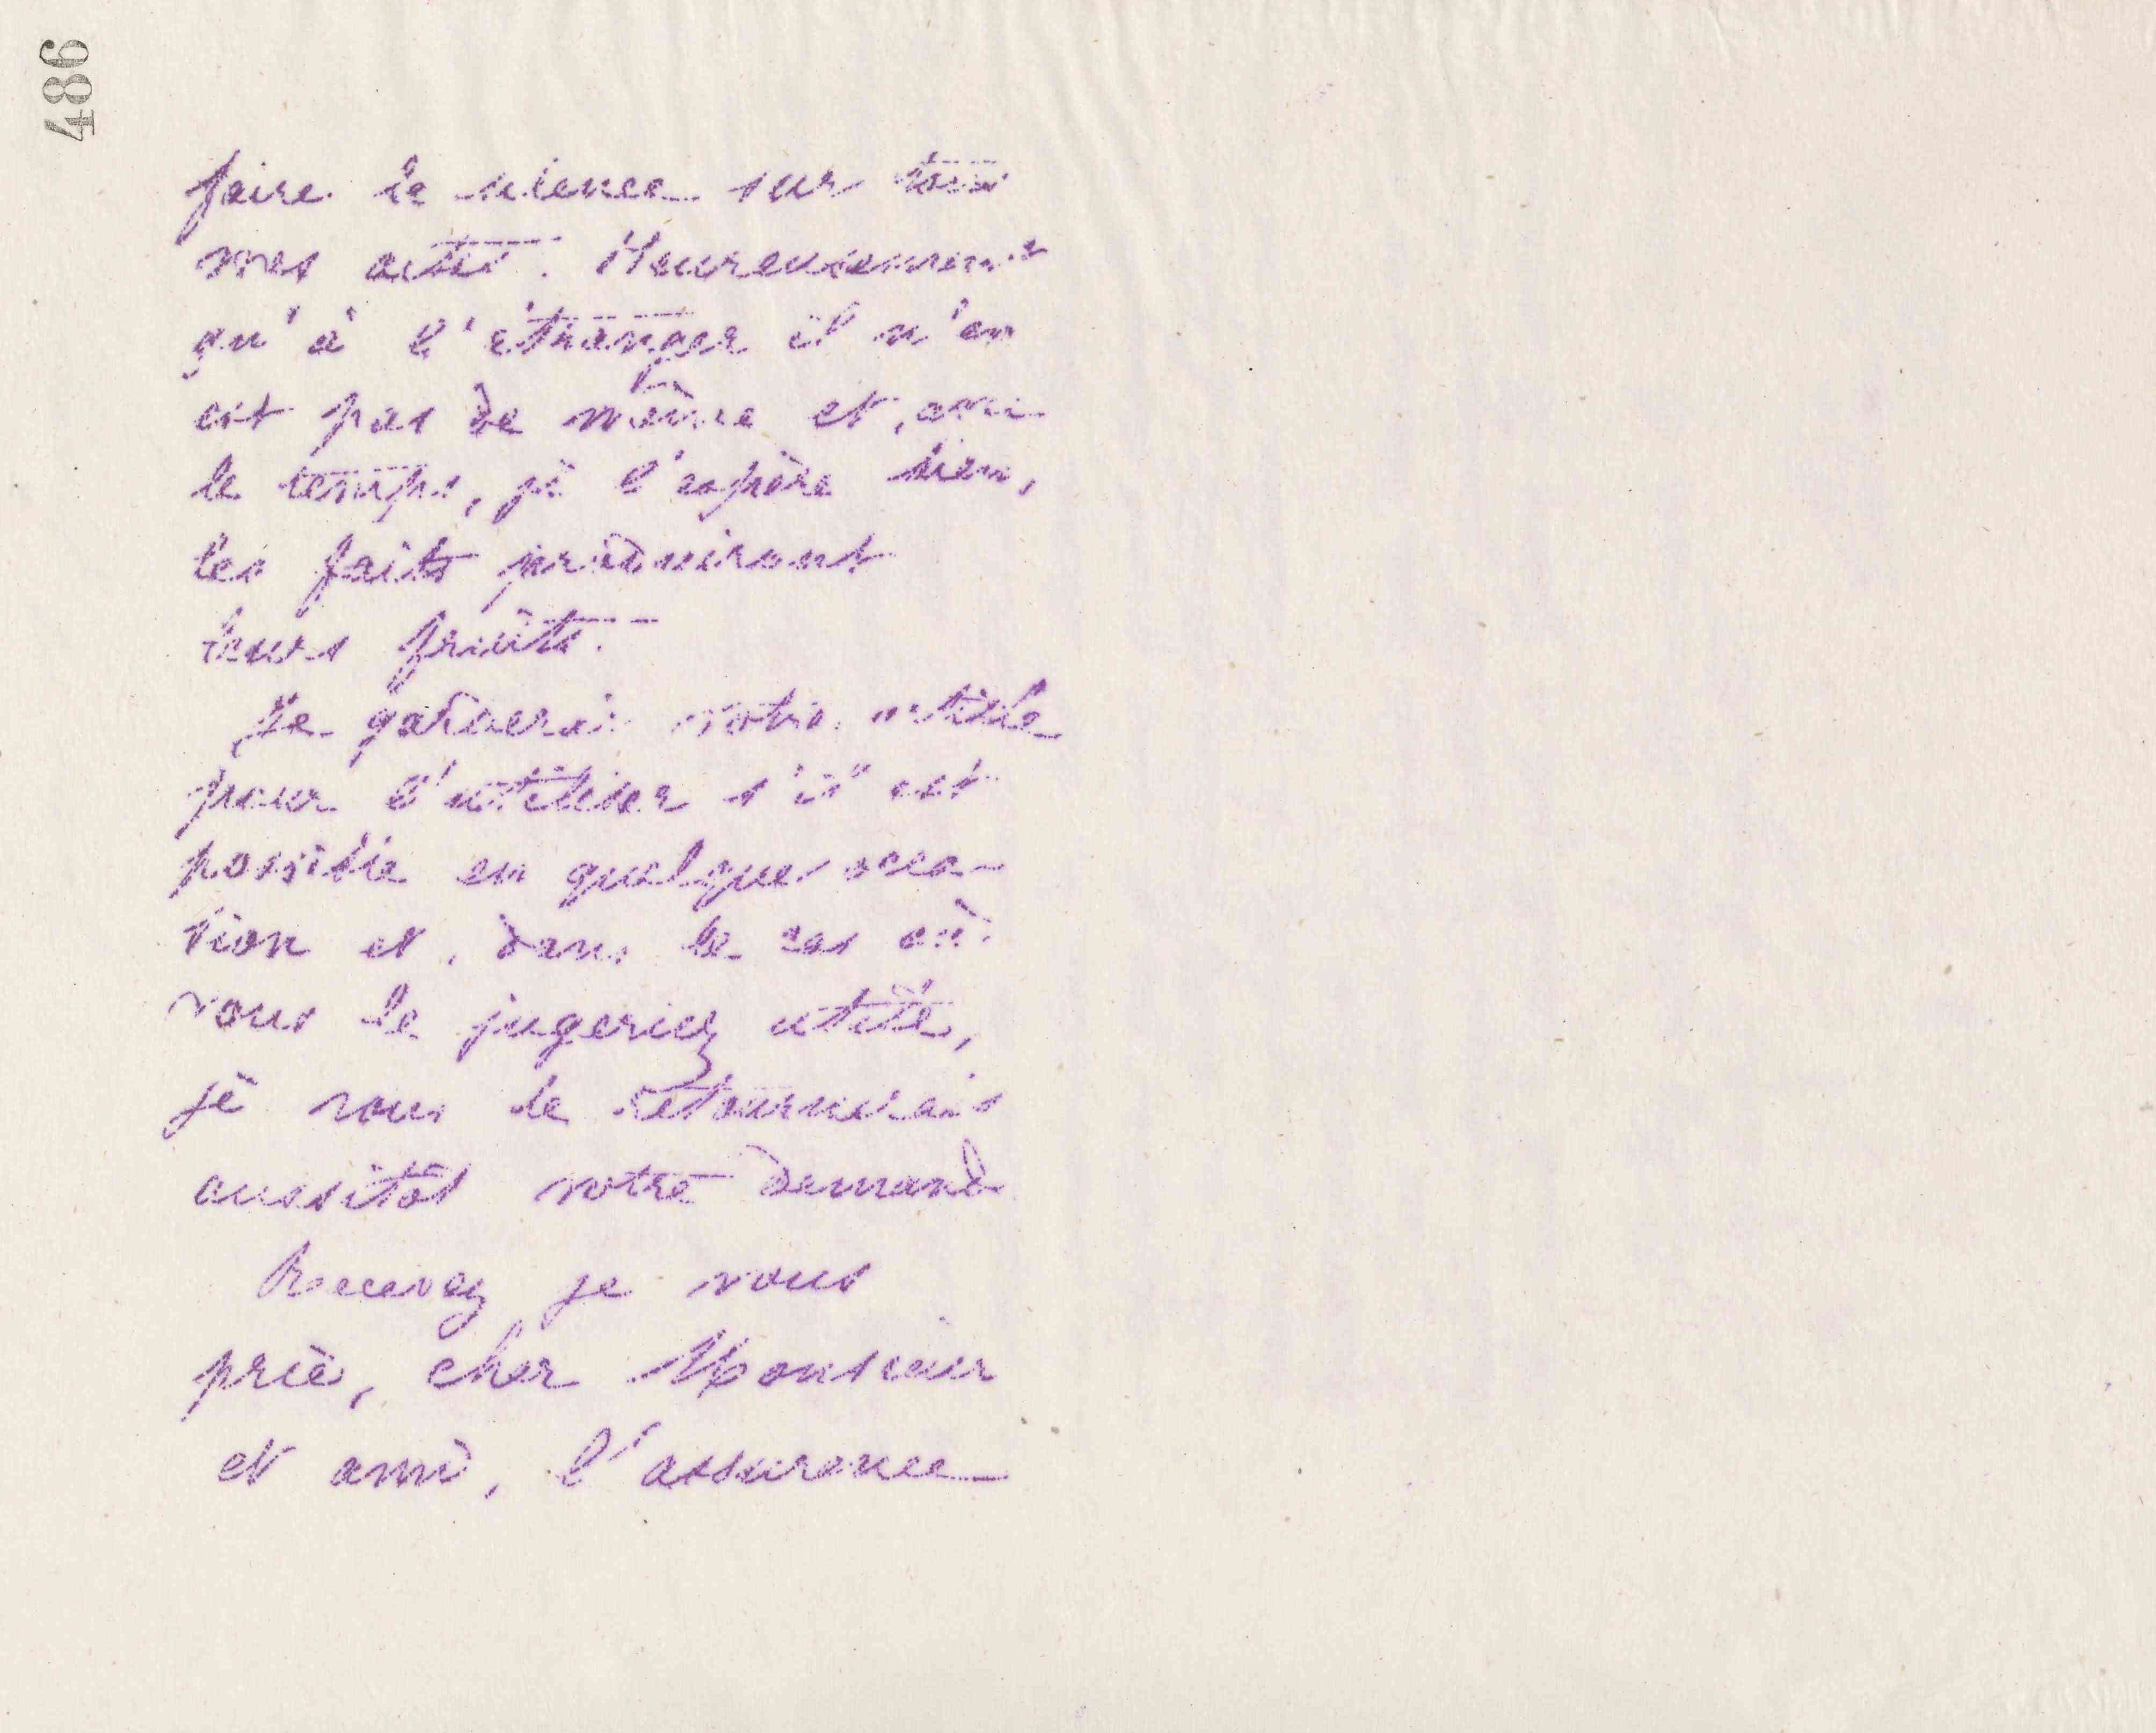 486
faire le silence sur tous
mes actes. Heureusement
qu'à l'étranger il n'en
est pas de même et, avec
le temps, je l'espère bien,
les faits produiront
leurs fruits.
Je garderai votre article
pour l'utiliser s'il est
possible en quelques occa-
sion et, dans le cas où
vous le jugeriez utile,
je vous le retournerais
aussitôt votre demand
Recevez je vous
prie, cher Monsieur
et ami, l'assurance